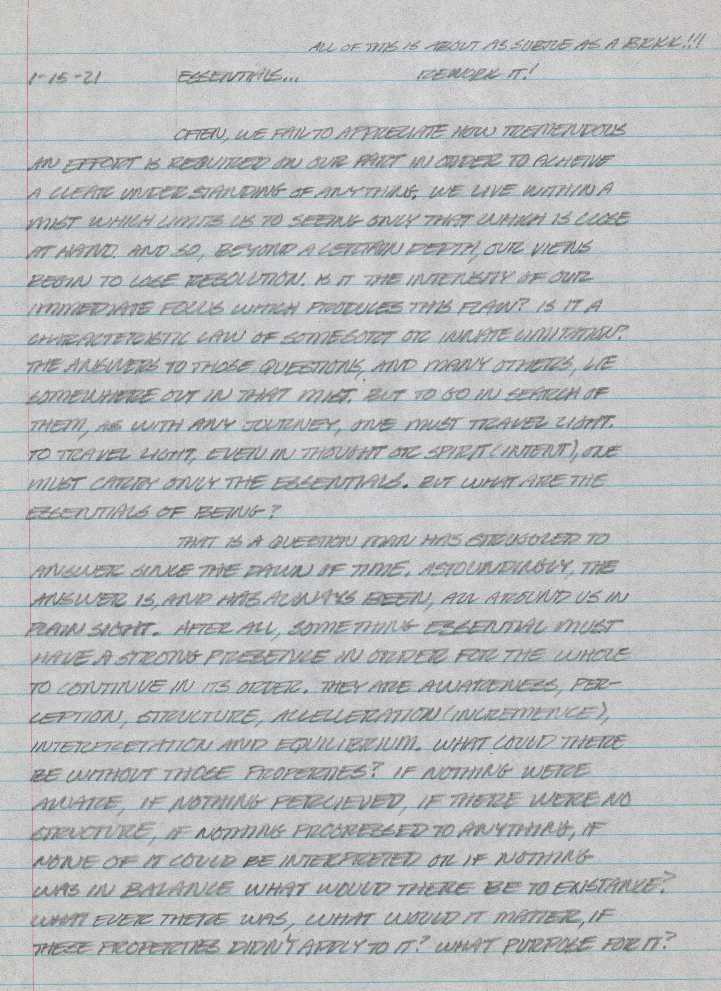 ALL OF THIS IS ABOUT AS SUBTLE AS A BRICK!!!
1-15-21 ESSENTIALS... REWORK IT!
OFTEN, WE FAIL TO APPRECIATE HOW TREMENDOUS
AN EFFORT IS REQUIRED ON OUR PART IN ORDER TO ACHEIVE
A CLEAR UNDERSTANDING OF ANYTHING. WE LIVE WITHIN A
MIST WHICH LIMITS US TO SEEING ONLY THAT WHICH IS CLOSE
AT HAND. AND SO, BEYOND A CERTAIN DEPTH, OUR VIEWS
BEGIN TO LOSE RESOLUTION. IS IT THE INTENSITY OF OUR
IMMEDIATE FOCUS WHICH PRODUCES THIS FLAW? IS IT A
CHARACTERISTIC LAW OF SOME SORT OR INNATE LIMITATION?
THE ANSWERS TO THOSE QUESTIONS, AND MANY OTHERS, LIE
SOMEWHERE OUT IN THAT MIST. BUT TO GO IN SEARCH OF
THEM, AS WITH ANY JOURNEY, ONE MUST TRAVEL LIGHT.
TO TRAVEL LIGHT, EVEN IN THOUGHT OR SPIRIT (INTENT), ONE
MUST CARRY ONLY THE ESSENTIALS. BUT WHAT ARE THE
ESSENTIALS OF BEING?
THAT IS A QUESTION MAN HAS STRUGGLED TO
ANSWER SINCE THE DAWN OF TIME. ASTOUNDINGLY, THE
ANSWER IS, AND HAS ALWAYS BEEN, ALL AROUND US IN
PLAIN SIGHT. AFTER ALL, SOMETHING ESSENTIAL MUST
HAVE A STRONG PRESENCE IN ORDER FOR THE WHOLE
TO CONTINUE IN ITS ORDER. THEY ARE AWARENESS, PER-
CEPTION, STRUCTURE, ACCELLERATION (INCREMENCE),
INTERPRETATION AND EQUILIBRIUM. WHAT COULD THERE
BE WITHOUT THOSE PROPERTIES? IF NOTHING WERE
AWARE, IF NOTHING PERCIEVED, IF THERE WERE NO
STRUCTURE, IF NOTHING PROGRESSED TO ANYTHING, IF
NONE OF IT COULD BE INTERPRETED OR IF NOTHING
WAS IN BALANCE WHAT WOULD THERE BE TO EXISTANCE?
WHAT EVER THERE WAS, WHAT WOULD IT MATTER, IF
THESE PROPERTIES DIDN'T APPLY TO IT? WHAT PURPOSE FOR IT?